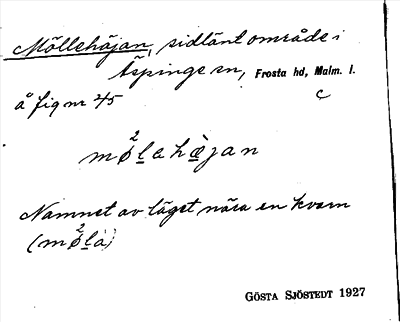 Möllehäjan, sidlänt område i
Äspinge sn, Frosta hd, Malm. l.
å fig nr 2/5 C
mø²lahæ̀jan
Namnet av läget nära en kvarn
(mø²la)
GÖSTA SJÖSTEDT 1927